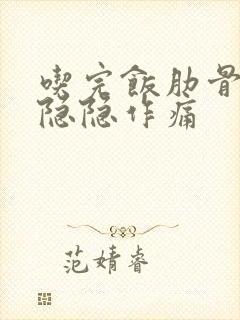 喫完飯肋骨
隐隐作痛
范婧睿